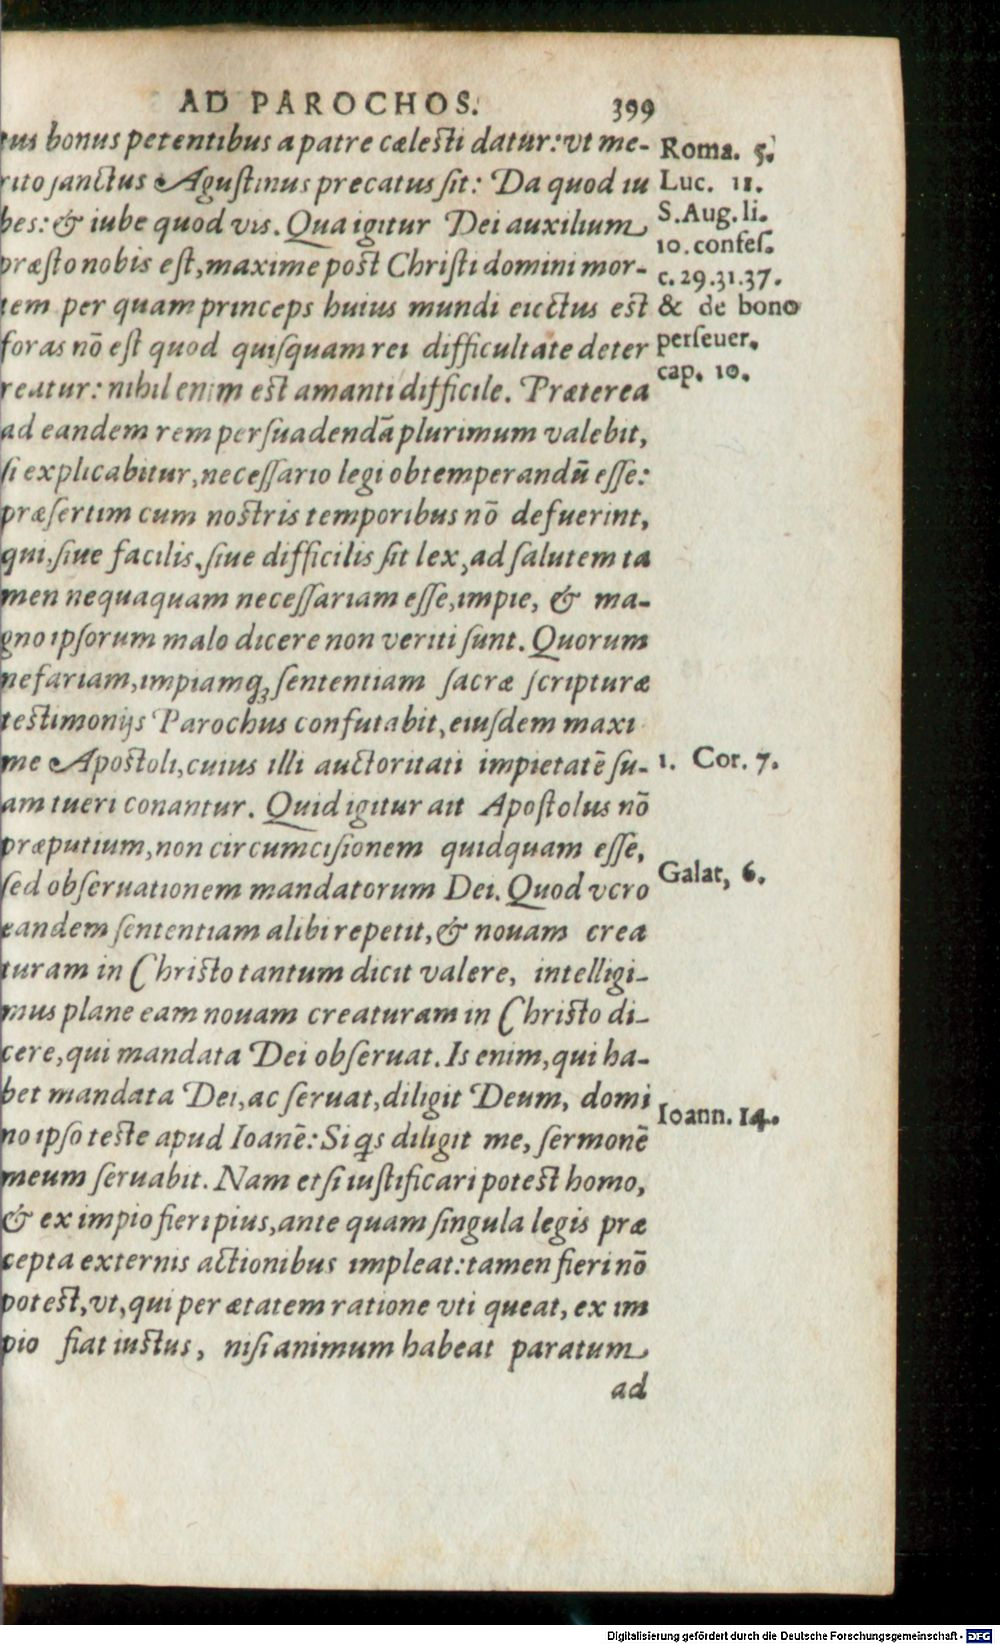 AD PAROCHOS. 399
tus bonus petentibus a patre cælesti datur: vt me-
rito sanctus Agustinus precatus sit: Da quod iu
bes: & iube quod vis. Qua igitur Dei auxilium
præsto nobis est, maxime post Christi domini mor-
tem per quam princeps huius mundi eiectus est
foras nō est quod quisquam rei difficultate deter
reatur: nihil enim est amanti difficile. Præterea
ad eandem rem persuadendā plurimum valebit,
si explicabitur, necessario legi obtemperandū esse:
præsertim cum nostris temporibus nō defuerint,
qui, siue facilis, siue difficilis sit lex, ad salutem ta
men nequaquam necessariam esse, impie, & ma-
gno ipsorum malo dicere non veriti sunt. Quorum
nefariam, impiamq; sententiam sacræ scripturæ
testimonijs Parochus confutabit, eiusdem maxi
me Apostoli, cuius illi auctoritati impietatē su-
am tueri conantur. Quid igitur ait Apostolus nō
præputium, non circumcisionem quidquam esse,
sed obseruationem mandatorum Dei. Quod vero
eandem sententiam alibi repetit, & nouam crea
turam in Christo tantum dicit valere, intelligi-
mus plane eam nouam creaturam in Christo di-
cere, qui mandata Dei obseruat. Is enim, qui ha-
bet mandata Dei, ac seruat, diligit Deum, domi
no ipso teste apud Ioanē: Si qs diligit me, sermonē
meum seruabit. Nam etsi iustificari potest homo,
& ex impio fieri pius, ante quam singula legis præ
cepta externis actionibus impleat: tamen fieri nō
potest, vt, qui per ætatem ratione vti queat, ex im
pio fiat iustus, nisi animum habeat paratum
ad
Roma. 5.
Luc. 11.
S. Aug. li.
10. confes.
c. 29. 31. 37.
& de bono
perseuer.
cap. 10.
1. Cor. 7.
Galat, 6.
Ioann. 14.
Digitalisierung gefördert durch die Deutsche Forschungsgemeinschaft - DFG